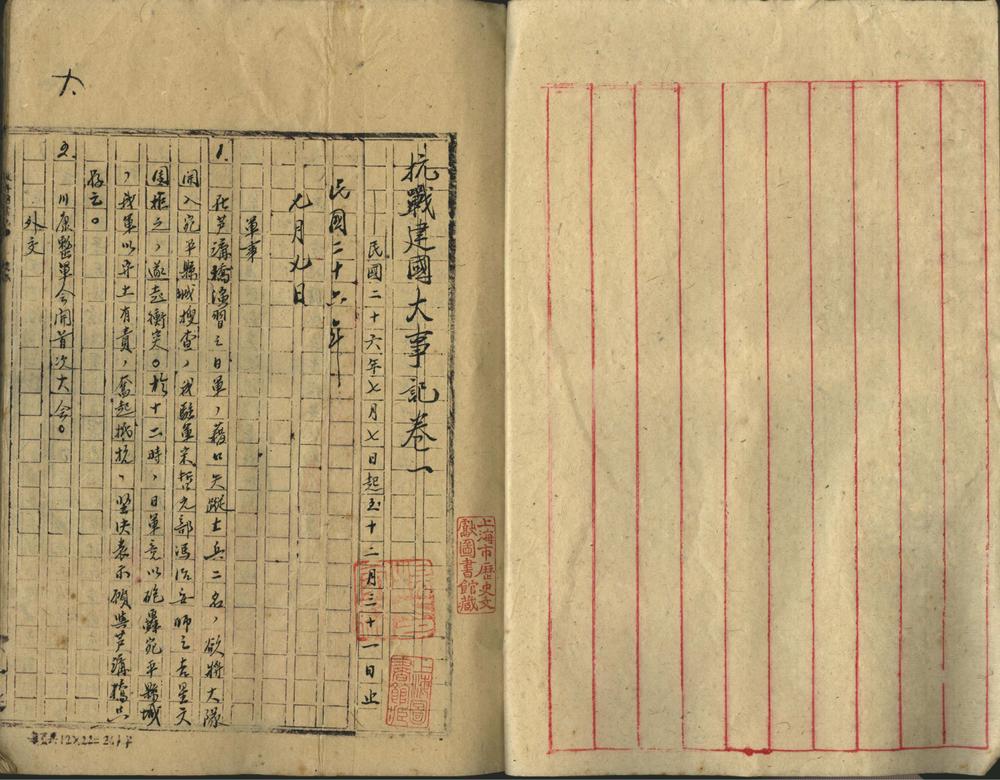 抗戰建國大事記卷二
民國二十六年七月七日起至十二月三十一日止
民國二十六年
七月七日
軍事
1. 在芦溝橋演習之日軍，藉口失蹤士兵二名，欲將大隊
開入宛平縣城搜查，我駐軍宋哲元部馮治安師之吉星文
團拒之，遂起衝突。於十二時，日軍竟以砲轟宛平縣城
，我軍以守土有責，奮起抵抗，堅決表示願與芦溝橋共
存亡。
2. 川康整軍会開首次大会。
外交
上海市歷史文
獻圖書館藏
上海圖
書館藏